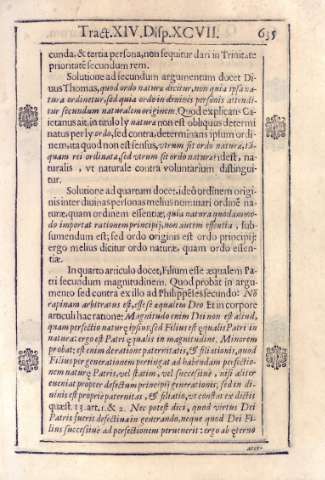 Tract. XIV. Disp. XCVII. 635
cunda, & tertia persona, non sequitur dari in Trinitate
prioritatē secundum rem.
Solutione ad secundum argumentum docet Di-
uus Thomas, quod ordo naturæ dicitur, non quia ipsa na-
tura ordinetur, sed quia ordo in diuinis personis attendi-
tur secundum naturalem originem. Quod explicans Ca-
ietanus ait, in titulo ly naturæ non est obliquus determi-
natus per ly ordo, sed contra, determinans ipsum ordi-
nem, ita quod non est sensus, vtrum sit ordo naturæ, tã-
quam rei ordinatæ, sed vtrum sit ordo naturæ idest, na-
turalis, vt naturale contra voluntarium distingui-
tur.
Solutione ad quartum docet, ideò ordinem origi-
nis inter diuinas personas melius nominari ordinē na-
turæ, quam ordinem essentiæ, quia natura quodammo-
do importat rationem principij, non autem essentia, sub-
sumendum est; sed ordo originis est ordo principij:
ergo melius dicitur ordo naturæ, quam ordo essen-
tiæ.
In quarto articulo docet, Filium esse æqualem Pa-
tri secundum magnitudinem. Quod probat in argu-
mento sed contra ex illo ad Philippēses secundo: Nō
rapinam arbitratus est, esse se equalem Deo Et in corpore
articuli hac ratione: Magnitudo enim Dei non est aliud,
quam perfectio naturę ipsius, sed Filius est ęqualis Patri in
natura: ergo est Patri ęqualis in magnitudine. Minorem
probat; est enim de ratione paternitatis, & filiationis, quod
Filius per generationem pertingat ad habendam perfectio-
nem naturę Patris, vel statim, vel successiuè, nisi aliter
eueniat propter defectum principij generationis; sed in di-
uinis est propriè paternitas, & filiatio, vt constat ex dictis
quæst. 33. art. 1. & 2. Nec potest dici, quod virtus Dei
Patris fuerit defectiua in generando, neque quod Dei Fi-
lius successiuè ad perfectionem peruenerit: ergo ab ęterno